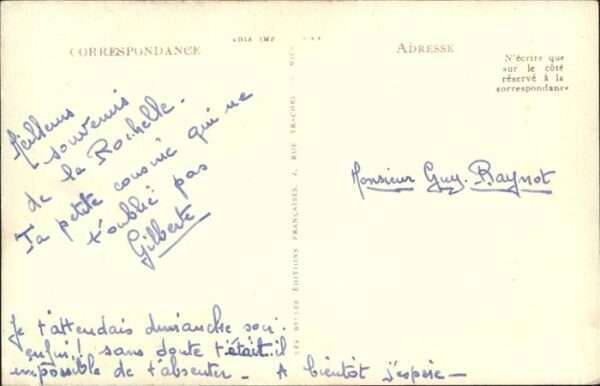 CORRESPONDANCE
ADRESSE
N'écrire que
sur le côté
réservé à la
correspondance
Meilleurs
souvenirs
de la Rochelle.
Ta petite cousine qui ne
t'oublie pas
Gilberte
Monsieur Guy. Raynot
Je t'attendais dimanche soir.
enfin! sans doute t'était il
impossible de t'absenter. A bientôt j'espère
ÉDITIONS FRANÇAISES, 2, RUE TRACHEL